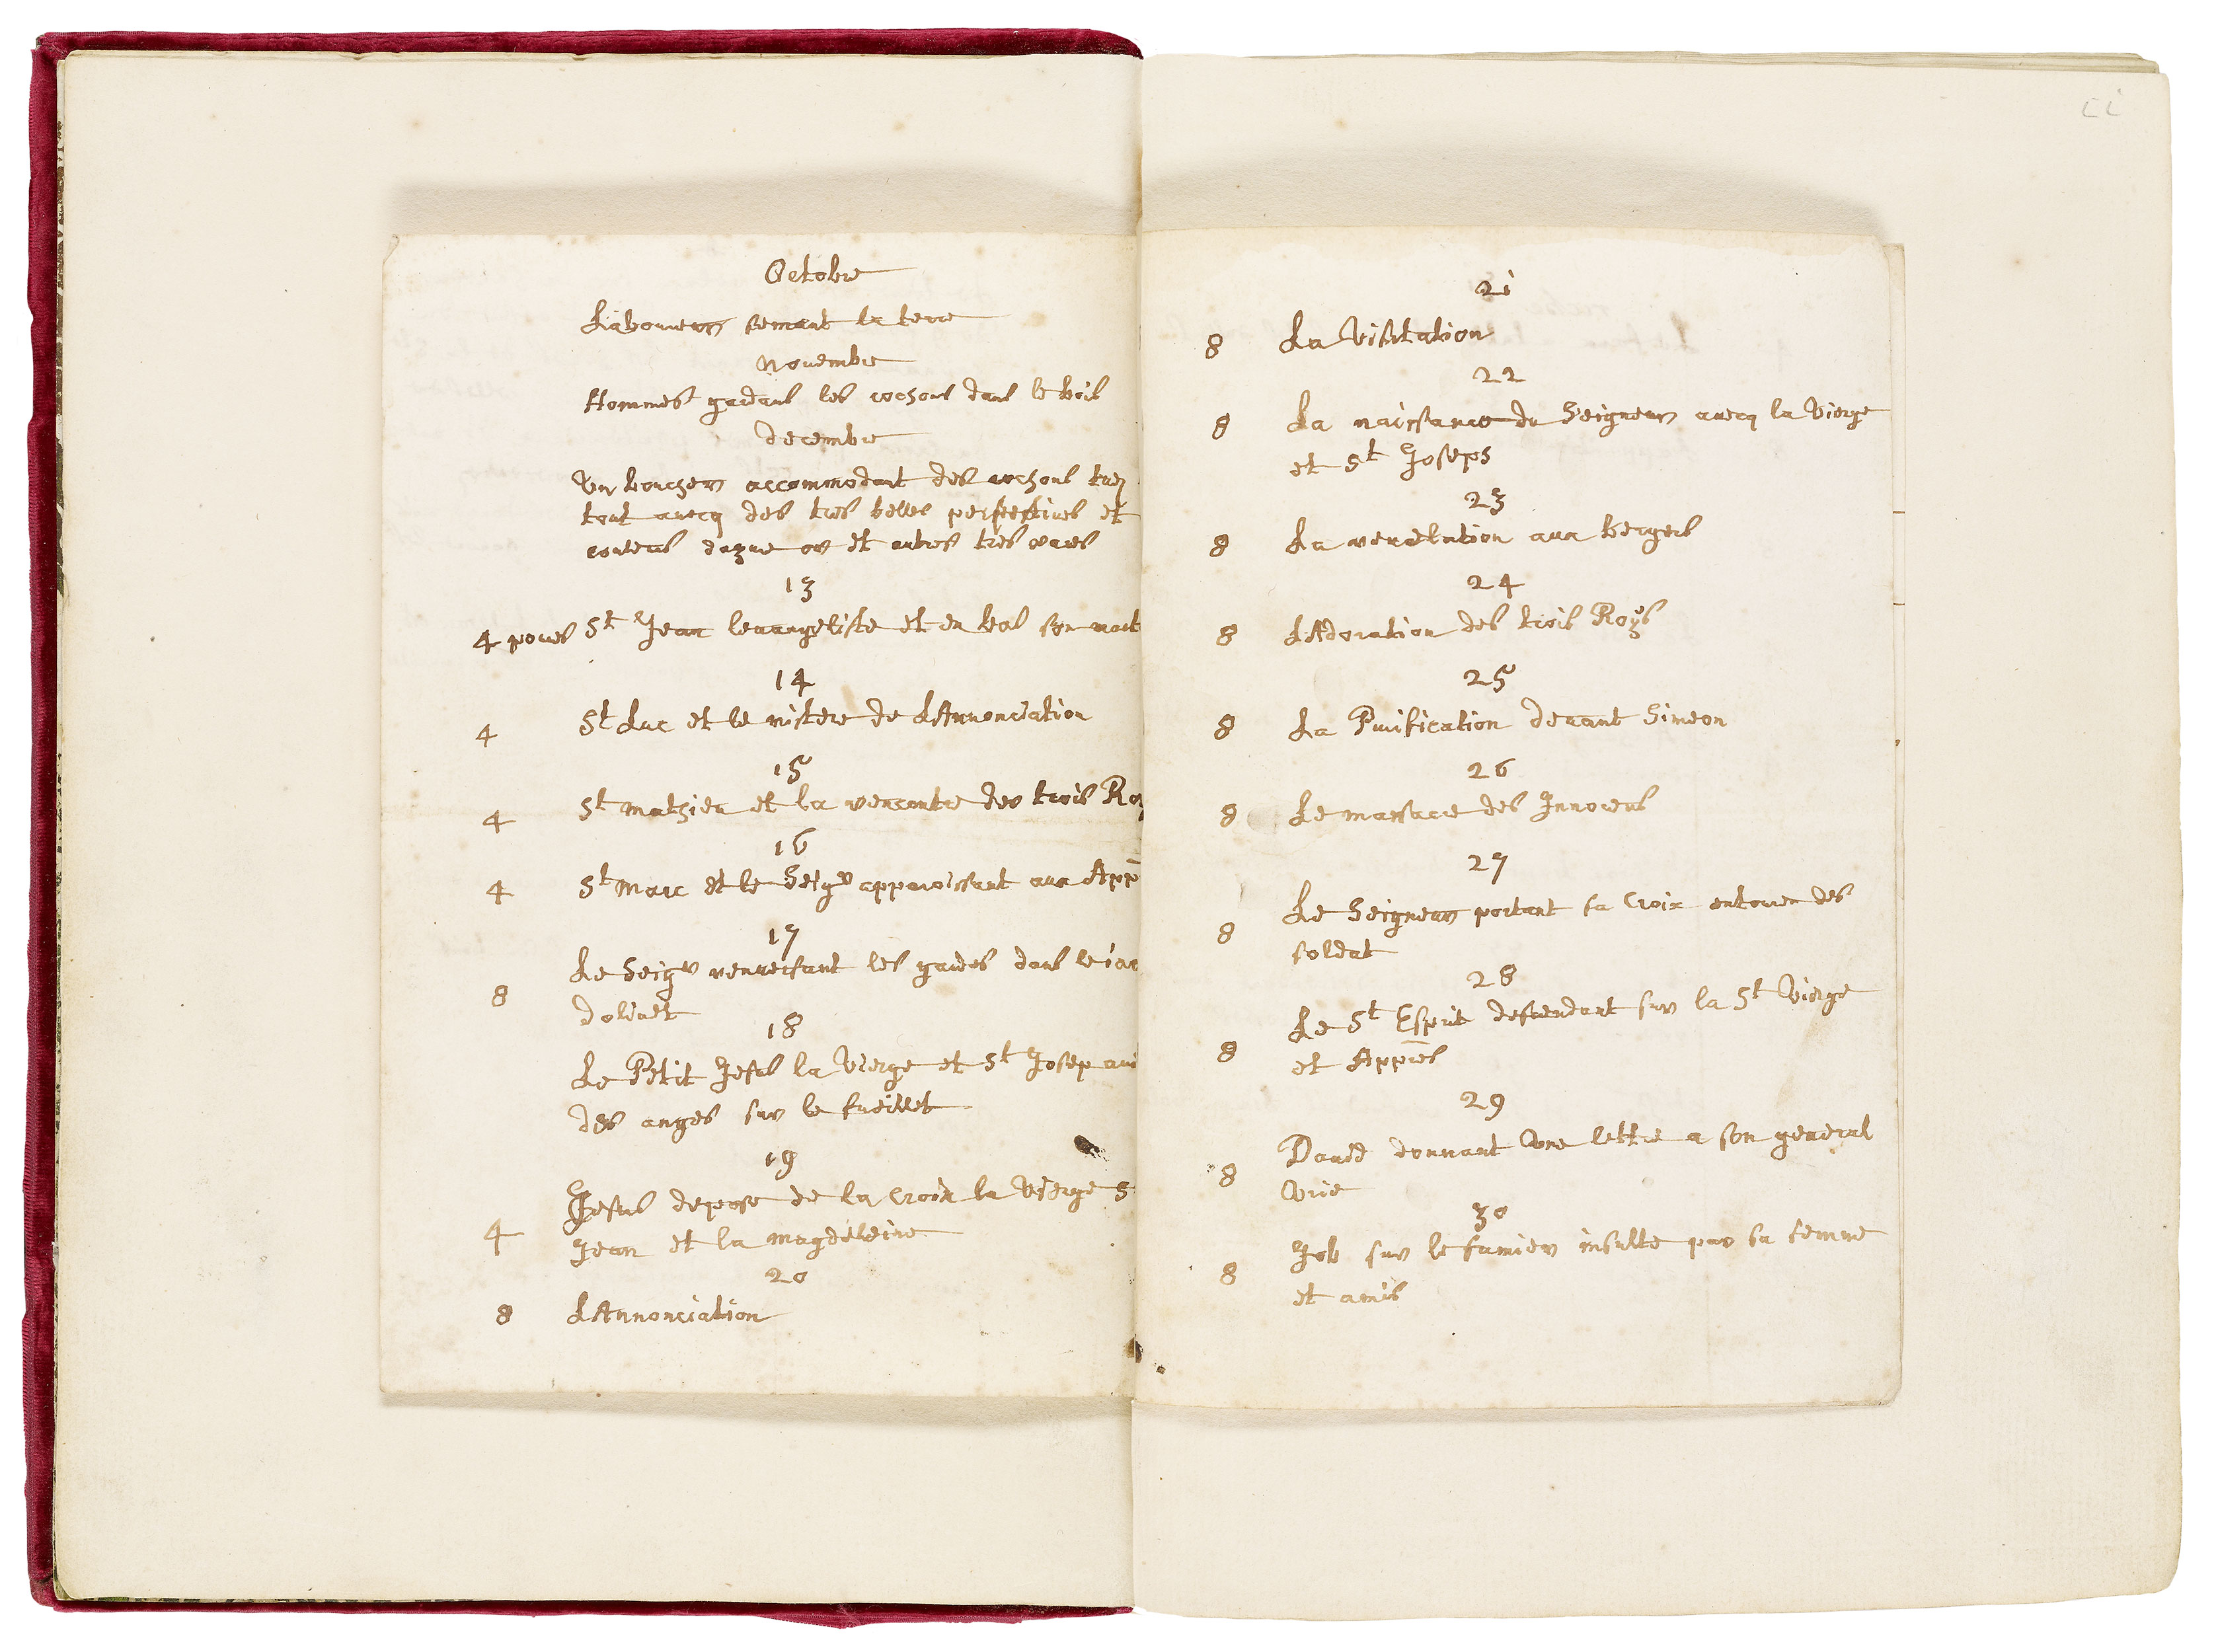 Octobre
Laboureurs semant la terre
Nouembre
Hommes gardans les cochons dans le bois
decembre
Vn boucher accommodant des cochons tuez
tout auecq des tres belles perspectiues et
couleurs dazue or et autres tres rares
13
4 pouces St Jean leuangeliste et en bas son mart
14
4 St Luc et le mistere de LAnnonciation
15
4 St Mathieu et la rencontre des trois Roy
16
4 St Marc et le Seigr apparoissant aux App
17
8 Le Seigr renuersant les gardes dans le iar
doliuet
18
Le Petit Jesus la Vierge et St Josep aue
des anges sur le fueillet
19
4 Jesus depose de la Croix la Vierge S
Jean et la magdeleine
20
8 LAnnonciation
21
8 La Visitation
22
8 La naissance du Seigneur auecq la Vierge
et St Joseph
23
8 La reuelation aux bergers
24
8 LAdoration des trois Roys
25
8 La Purification deuant Simeon
26
8 Le massacre des Innocens
27
8 Le Seigneur portant sa Croix entouré des
soldat
28
8 Le St Esprit descendant sur la St Vierge
et Appres
29
8 Dauid donnant vne lettre a son general
Vrie
30
8 Job sur le fumier insulte par sa femme
et amis